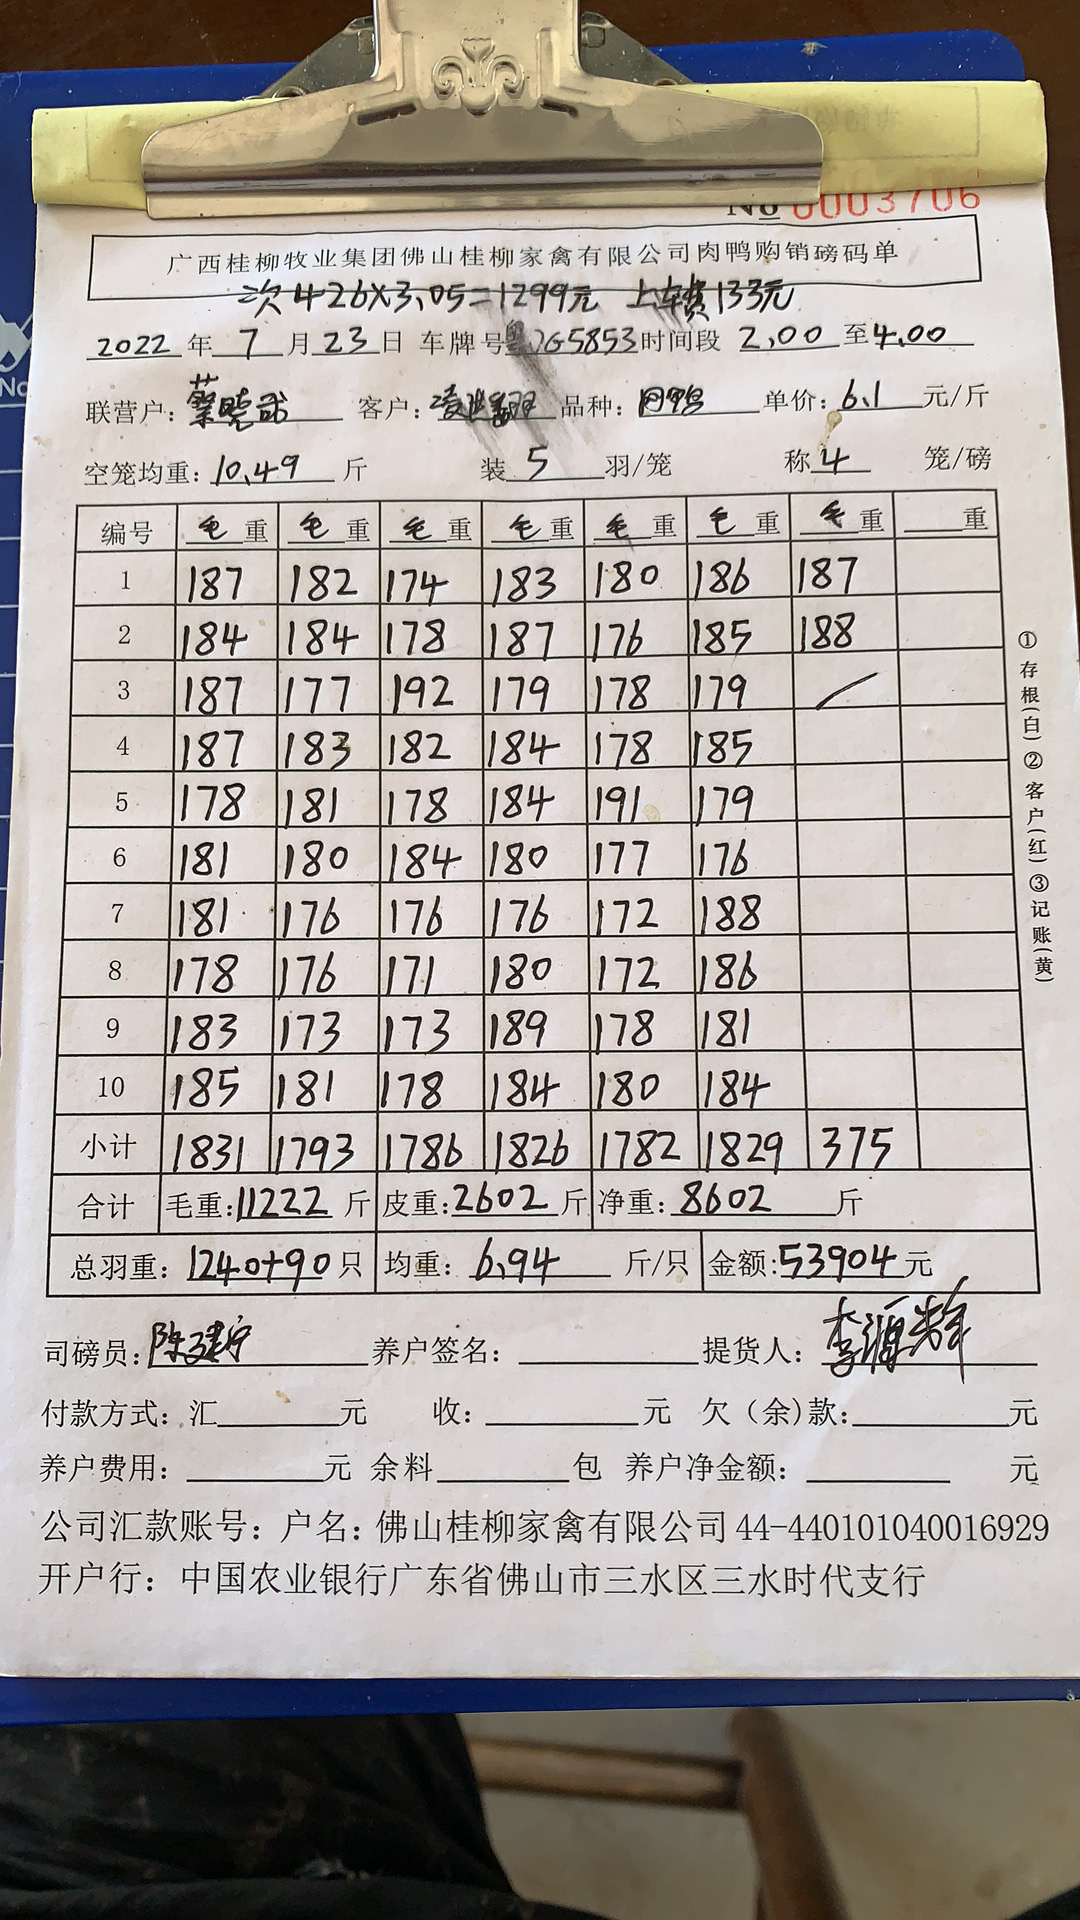 No 0003706
广西桂柳牧业集团佛山桂柳家禽有限公司肉鸭购销磅码单
次426X3.05=1299元 上车费133元
2022年7月23日 车牌号粤JG5853时间段2.00至4.00
联营户:蔡 客户: 品种:肉鸭 单价:6.1元/斤
空笼均重:10.49斤 装5羽/笼 称4笼/磅
编号 毛重 毛重 毛重 毛重 毛重 毛重 毛重 重
1 187 182 174 183 180 186 187
2 184 184 178 187 176 185 188
3 187 177 192 179 178 179 /
4 187 183 182 184 178 185
5 178 181 178 184 191 179
6 181 180 184 180 177 176
7 181 176 176 176 172 188
8 178 176 171 180 172 186
9 183 173 173 189 178 181
10 185 181 178 184 180 184
小计 1831 1793 1786 1826 1782 1829 375
合计 毛重:11222斤 皮重:2602斤 净重:8602斤
总羽重:1240+90只 均重:6.94斤/只 金额:53904元
司磅员:陈建宁 养户签名: 提货人:李源
付款方式:汇 元 收: 元 欠（余)款: 元
养户费用: 元 余料 包 养户净金额: 元
公司汇款账号:户名:佛山桂柳家禽有限公司44-440101040016929
开户行:中国农业银行广东省佛山市三水区三水时代支行
①存根(白)②客户(红)③记账(黄)